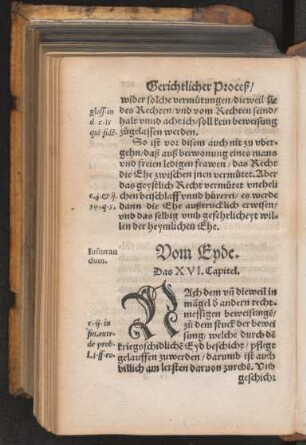 Gerichtlicher Proceß/
wider solche vermůtungen/dieweil sie
des Rechten/vnd vom Rechten seind/
halt vnnd achtlich/soll kein beweisung
zůgelassen werden.
So ist vor disem auch nit zu vber-
gehn/daß auß bewonung eines mans
vnd freien ledigen frawen/das Recht
die Ehe zwischen jnen vermůtet. Aber
das geystlich Recht vermůtet vneheli
chen beischlaff vnnd hůrerei/es werde
dann die Ehe außtrücklich erwisen/
vnd das selbig vmb geferlicheyt wil-
len der heymlichen Ehe.
Iusiuran
dum.
Vom Eyde.
Das XVI. Capitel.
NAch dem vñ dieweil in
mägel ď andern recht-
messigen beweisungē/
zů dem stuck der bewei
sung/welche durch dē
kriegschidlichē Eyd beschicht/pflegt
gelauffen zuwerden/darumb ist auch
billich am letsten daruon zuredē. Vnd
geschicht